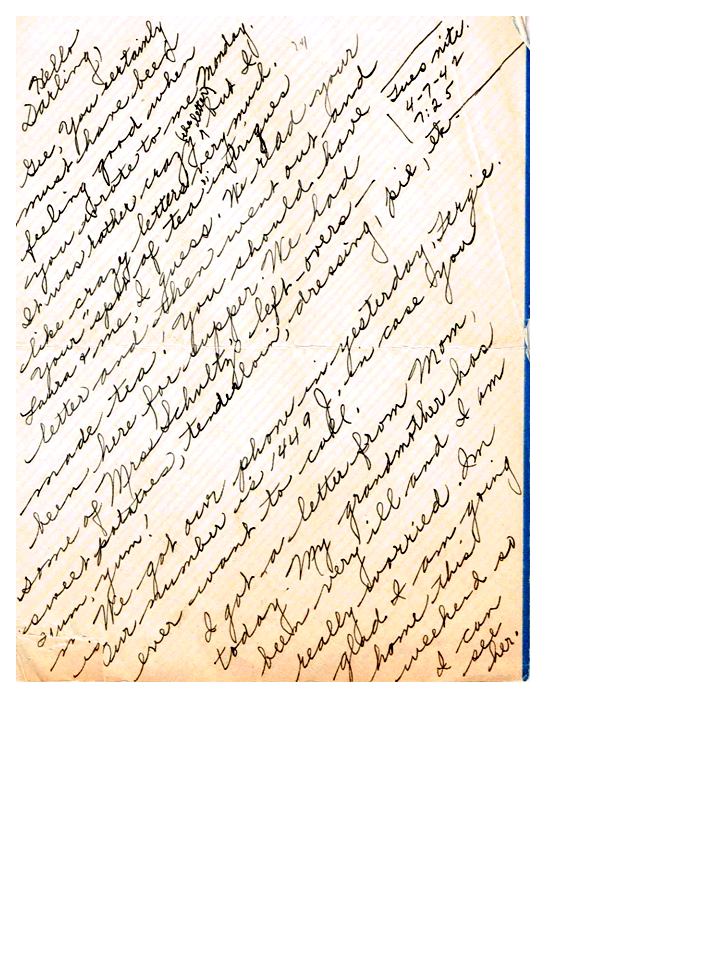 Tues nite.
4-7-42
7:25
Hello
Darling,
Gee, you sertainly
must have been
feeling good when
you wrote to me Monday.
It was rather crazy (the letter) but I
like crazy letters very much.
Your "spot of tea" intrigues
Laura & me, I guess. We read your
letter and then went out and
made tea. You should have
been here for supper. We had
some of Mrs. Schultz' left-overs—
sweet potatoes, tenderloin, dressing, pie, etc.
'um, yum!
We got our phone in yesterday, Fergie.
Our number is 1449 J. in case you
ever want to call.
I got a letter from Mom,
today. My grandmother has
been very ill and I am
really worried. I'm
glad I am going
home this
weekend so
I can
see
her.